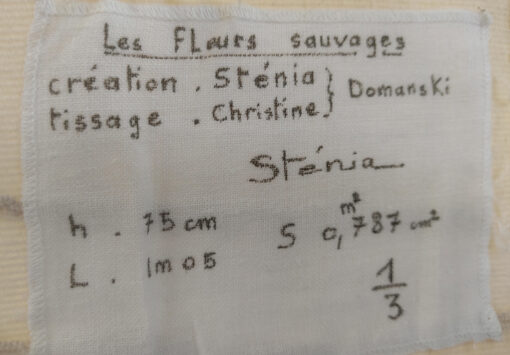 Les FLeurs sauvages
création . Sténia } Domanski
tissage . Christine }
Sténia
h . 75 cm
S 0,787 m² cm²
L . 1m05
1/3